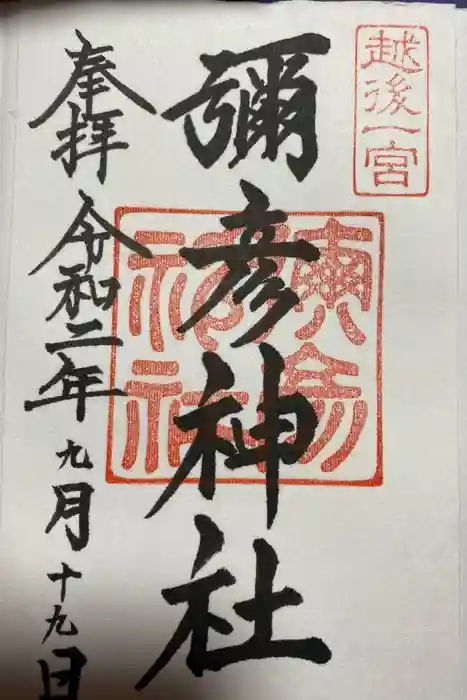 越後一宮
彌彦神社
奉拝 令和二年九月十九日